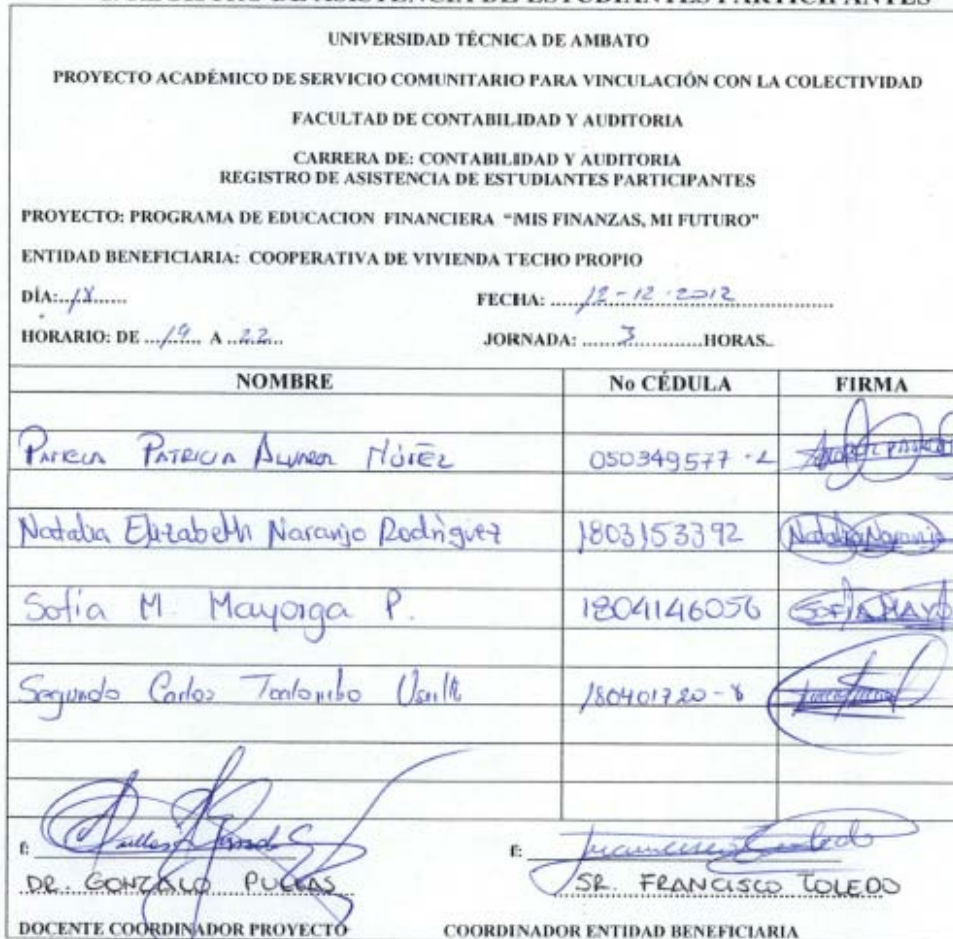 REGISTRO DE ASISTENCIA DE ESTUDIANTES PARTICIPANTES
UNIVERSIDAD TÉCNICA DE AMBATO
PROYECTO ACADÉMICO DE SERVICIO COMUNITARIO PARA VINCULACIÓN CON LA COLECTIVIDAD
FACULTAD DE CONTABILIDAD Y AUDITORIA
CARRERA DE: CONTABILIDAD Y AUDITORIA
REGISTRO DE ASISTENCIA DE ESTUDIANTES PARTICIPANTES
PROYECTO: PROGRAMA DE EDUCACION FINANCIERA “MIS FINANZAS, MI FUTURO”
ENTIDAD BENEFICIARIA: COOPERATIVA DE VIVIENDA TECHO PROPIO
DÍA: FECHA: 12-12-2012
HORARIO: DE 19 A 22 JORNADA: 3 HORAS.
NOMBRE No CÉDULA FIRMA
PATRICIA Núñez 050349577
Natalia Elizabeth Naranjo Rodriguez 1803153392 Natalia Naranjo
Sofía M. Mayorga P. 1804146056 SOFIA MAYO
Segundo Carlos 180401720-8
f: f:
DR. GONZALO PULLAS SR. FRANCISCO TOLEDO
DOCENTE COORDINADOR PROYECTO COORDINADOR ENTIDAD BENEFICIARIA